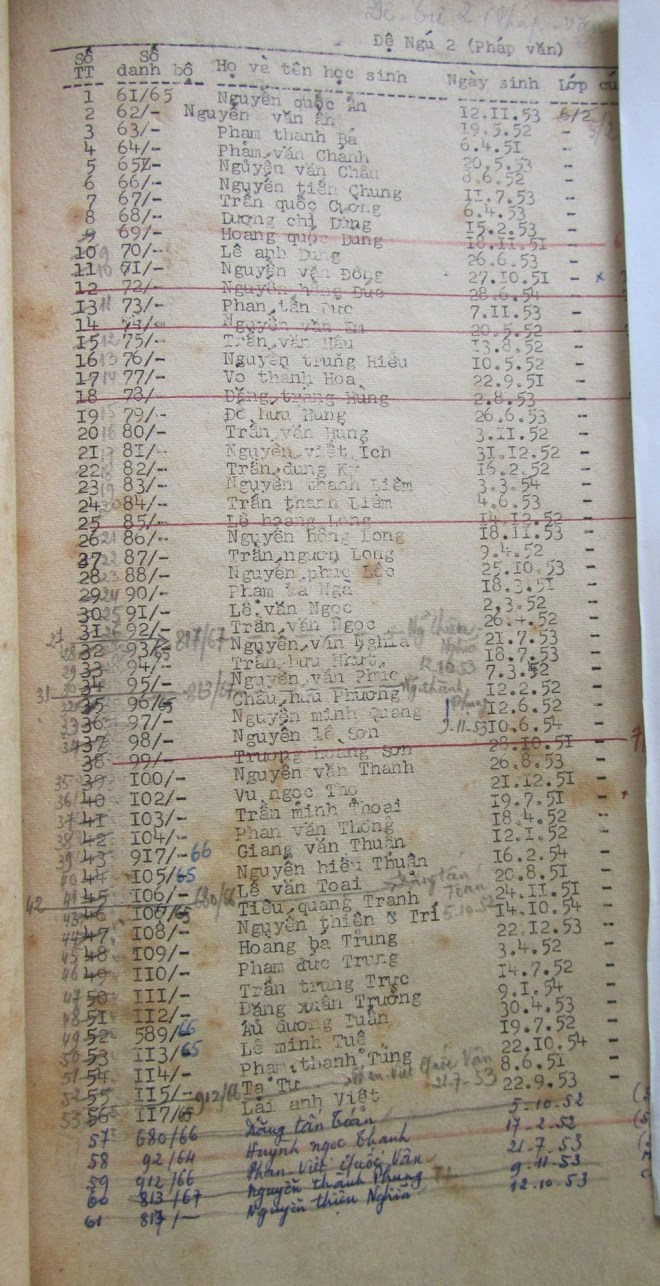 Đệ Ngũ 2 (Pháp văn)
Số TT Số danh bộ Họ và tên học sinh Ngày sinh Lớp cũ
1 61/65 Nguyễn quốc Ấn 12.11.53 6/2
2 62/- Nguyễn văn ấn 19.5.52 -
3 63/- Phạm thanh Bá 6.4.51 -
4 64/- Phạm văn Chánh 20.5.53 -
5 65/- Nguyễn văn Châu 8.6.52 -
6 66/- Nguyễn tiến Chung 11.7.53 -
7 67/- Trần quốc Cường 6.4.53 -
8 68/- Dương chí Dũng 15.2.53 -
9 69/- Hoàng quốc Dũng 18.11.51 -
10 70/- Lê anh Dũng 26.6.53 -
11 71/- Nguyễn văn Đông 27.10.51 -
12 72/- Nguyễn hồng Đức 28.6.54 -
13 73/- Phan tấn Đức 7.11.53 -
14 74/- Nguyễn văn Em 20.5.52 -
15 75/- Trần văn Hầu 13.8.52 -
16 76/- Nguyễn trung Hiếu 10.5.52 -
17 77/- Võ thanh Hoa 22.9.51 -
18 78/- Đặng tráng Hùng 2.8.53 -
19 79/- Đỗ hữu Hùng 26.6.53 -
20 80/- Trần văn Hùng 3.11.52 -
21 81/- Nguyễn viết Ích 31.12.52 -
22 82/- Trần dung Kỳ 16.2.52 -
23 83/- Nguyễn thanh Liêm 3.3.54 -
24 84/- Trần thanh Liêm 4.6.53 -
25 85/- Lê hoàng Long 14.12.52 -
26 86/- Nguyễn hồng Long 18.11.53 -
27 87/- Trần ngươn Long 9.4.52 -
28 88/- Nguyễn phúc Lộc 25.10.53 -
29 90/- Phạm bá Ngà 18.3.51 -
30 91/- Lê văn Ngọc 2.3.52 -
31 92/- Trần văn Ngọc 26.4.52 -
32 93/- 817/67 Nguyễn văn Nghĩa 21.7.53 -
33 94/- Trần hữu Nhựt 12.10.53 18.7.53 -
34 95/- Nguyễn văn Phúc 7.3.52 -
35 96/65 813/67 Châu hữu Phương 12.2.52 -
36 97/- Nguyễn minh Quang 12.6.52 -
37 98/- Nguyễn lê Sơn 9.11.53 10.6.54 -
38 99/- Trương hoàng Sơn 29.10.51 -
39 100/- Nguyễn văn Thanh 26.8.53 -
40 102/- Vũ ngọc Thọ 21.12.51 -
41 103/- Trần minh Thoại 19.7.51 -
42 104/- Phan văn Thông 18.4.52 -
43 917/-66 Giang văn Thuận 12.1.52 -
44 105/65 Nguyễn hiếu Thuận 16.2.54 -
45 106/- Lê văn Toại 20.8.51 -
46 106/65 680/66 Tiêu quang Tranh 5.10.52 24.11.51 -
47 108/- Nguyễn thiên Trí 14.10.54 -
48 109/- Hoàng bá Trung 22.12.53 -
49 110/- Phạm đức Trung 3.4.52 -
50 111/- Trần trung Trực 14.7.52 -
51 112/- Đặng xuân Trường 9.1.54 -
52 589/66 Âu dương Tuấn 30.4.53 -
53 113/65 Lê minh Tuệ 19.7.52 -
54 114/- Phạm thanh Tùng 22.10.54 -
55 115/- 912/66 Tạ Tư Phan Viết Quốc Vân 21-7-53 8.6.51 -
56 117/65 Lại anh Việt 22.9.53 -
57 680/66 Đặng tấn Toàn 5-10-52
58 92/64 Huỳnh ngọc Thanh 17-2-52
59 912/66 Phan Viết Quốc Vân 21-7-53
60 813/67 Nguyễn thành Phụng 9-11-53
61 817/- Nguyễn thiện Nghĩa 12-10-53